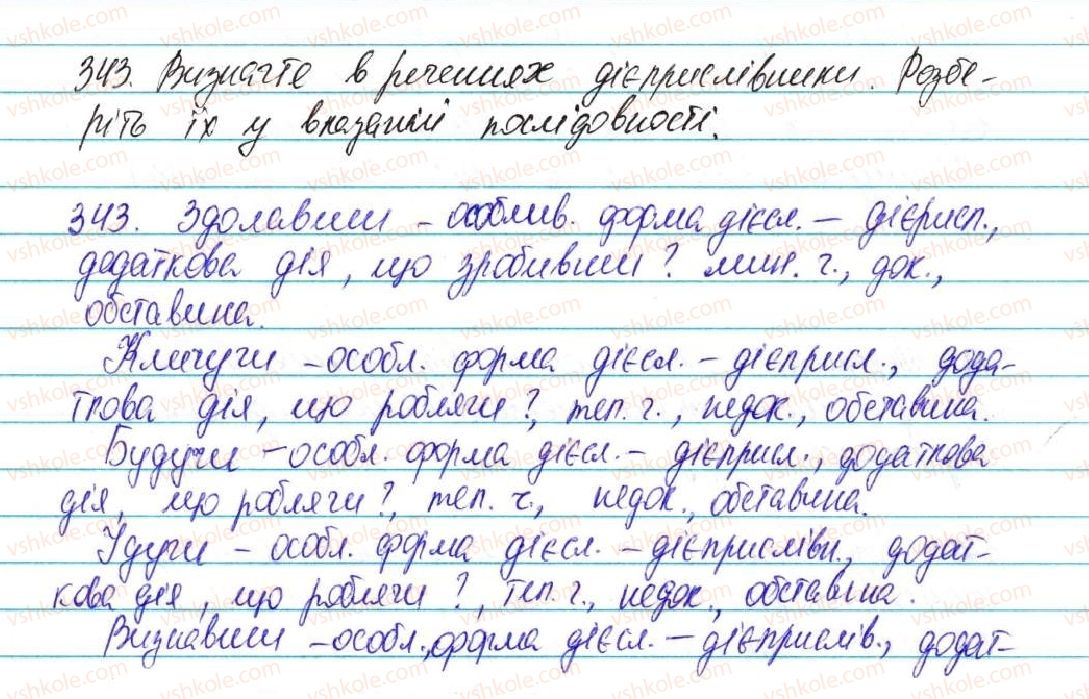 343. Визначте в реченнях дієприслівники. Розбе-
ріть їх у вказаній послідовності.
343. Здолавши – особлив. форма дієсл. – дієприсл.,
додаткова дія, що зробивши? мин. ч., док.,
обставина.
Кличучи – особл. форма дієсл. – дієприсл., дода-
ткова дія, що роблячи?, теп. ч., недок., обставина.
Будучи – особл. форма дієсл. – дієприсл., додаткова
дія, що роблячи?, теп. ч., недок., обставина.
Ідучи – особл. форма дієсл. – дієприслівн., додат-
кова дія, що роблячи?, теп. ч., недок., обставина.
Визнавши – особл., форма дієсл. – дієприслів., додат-